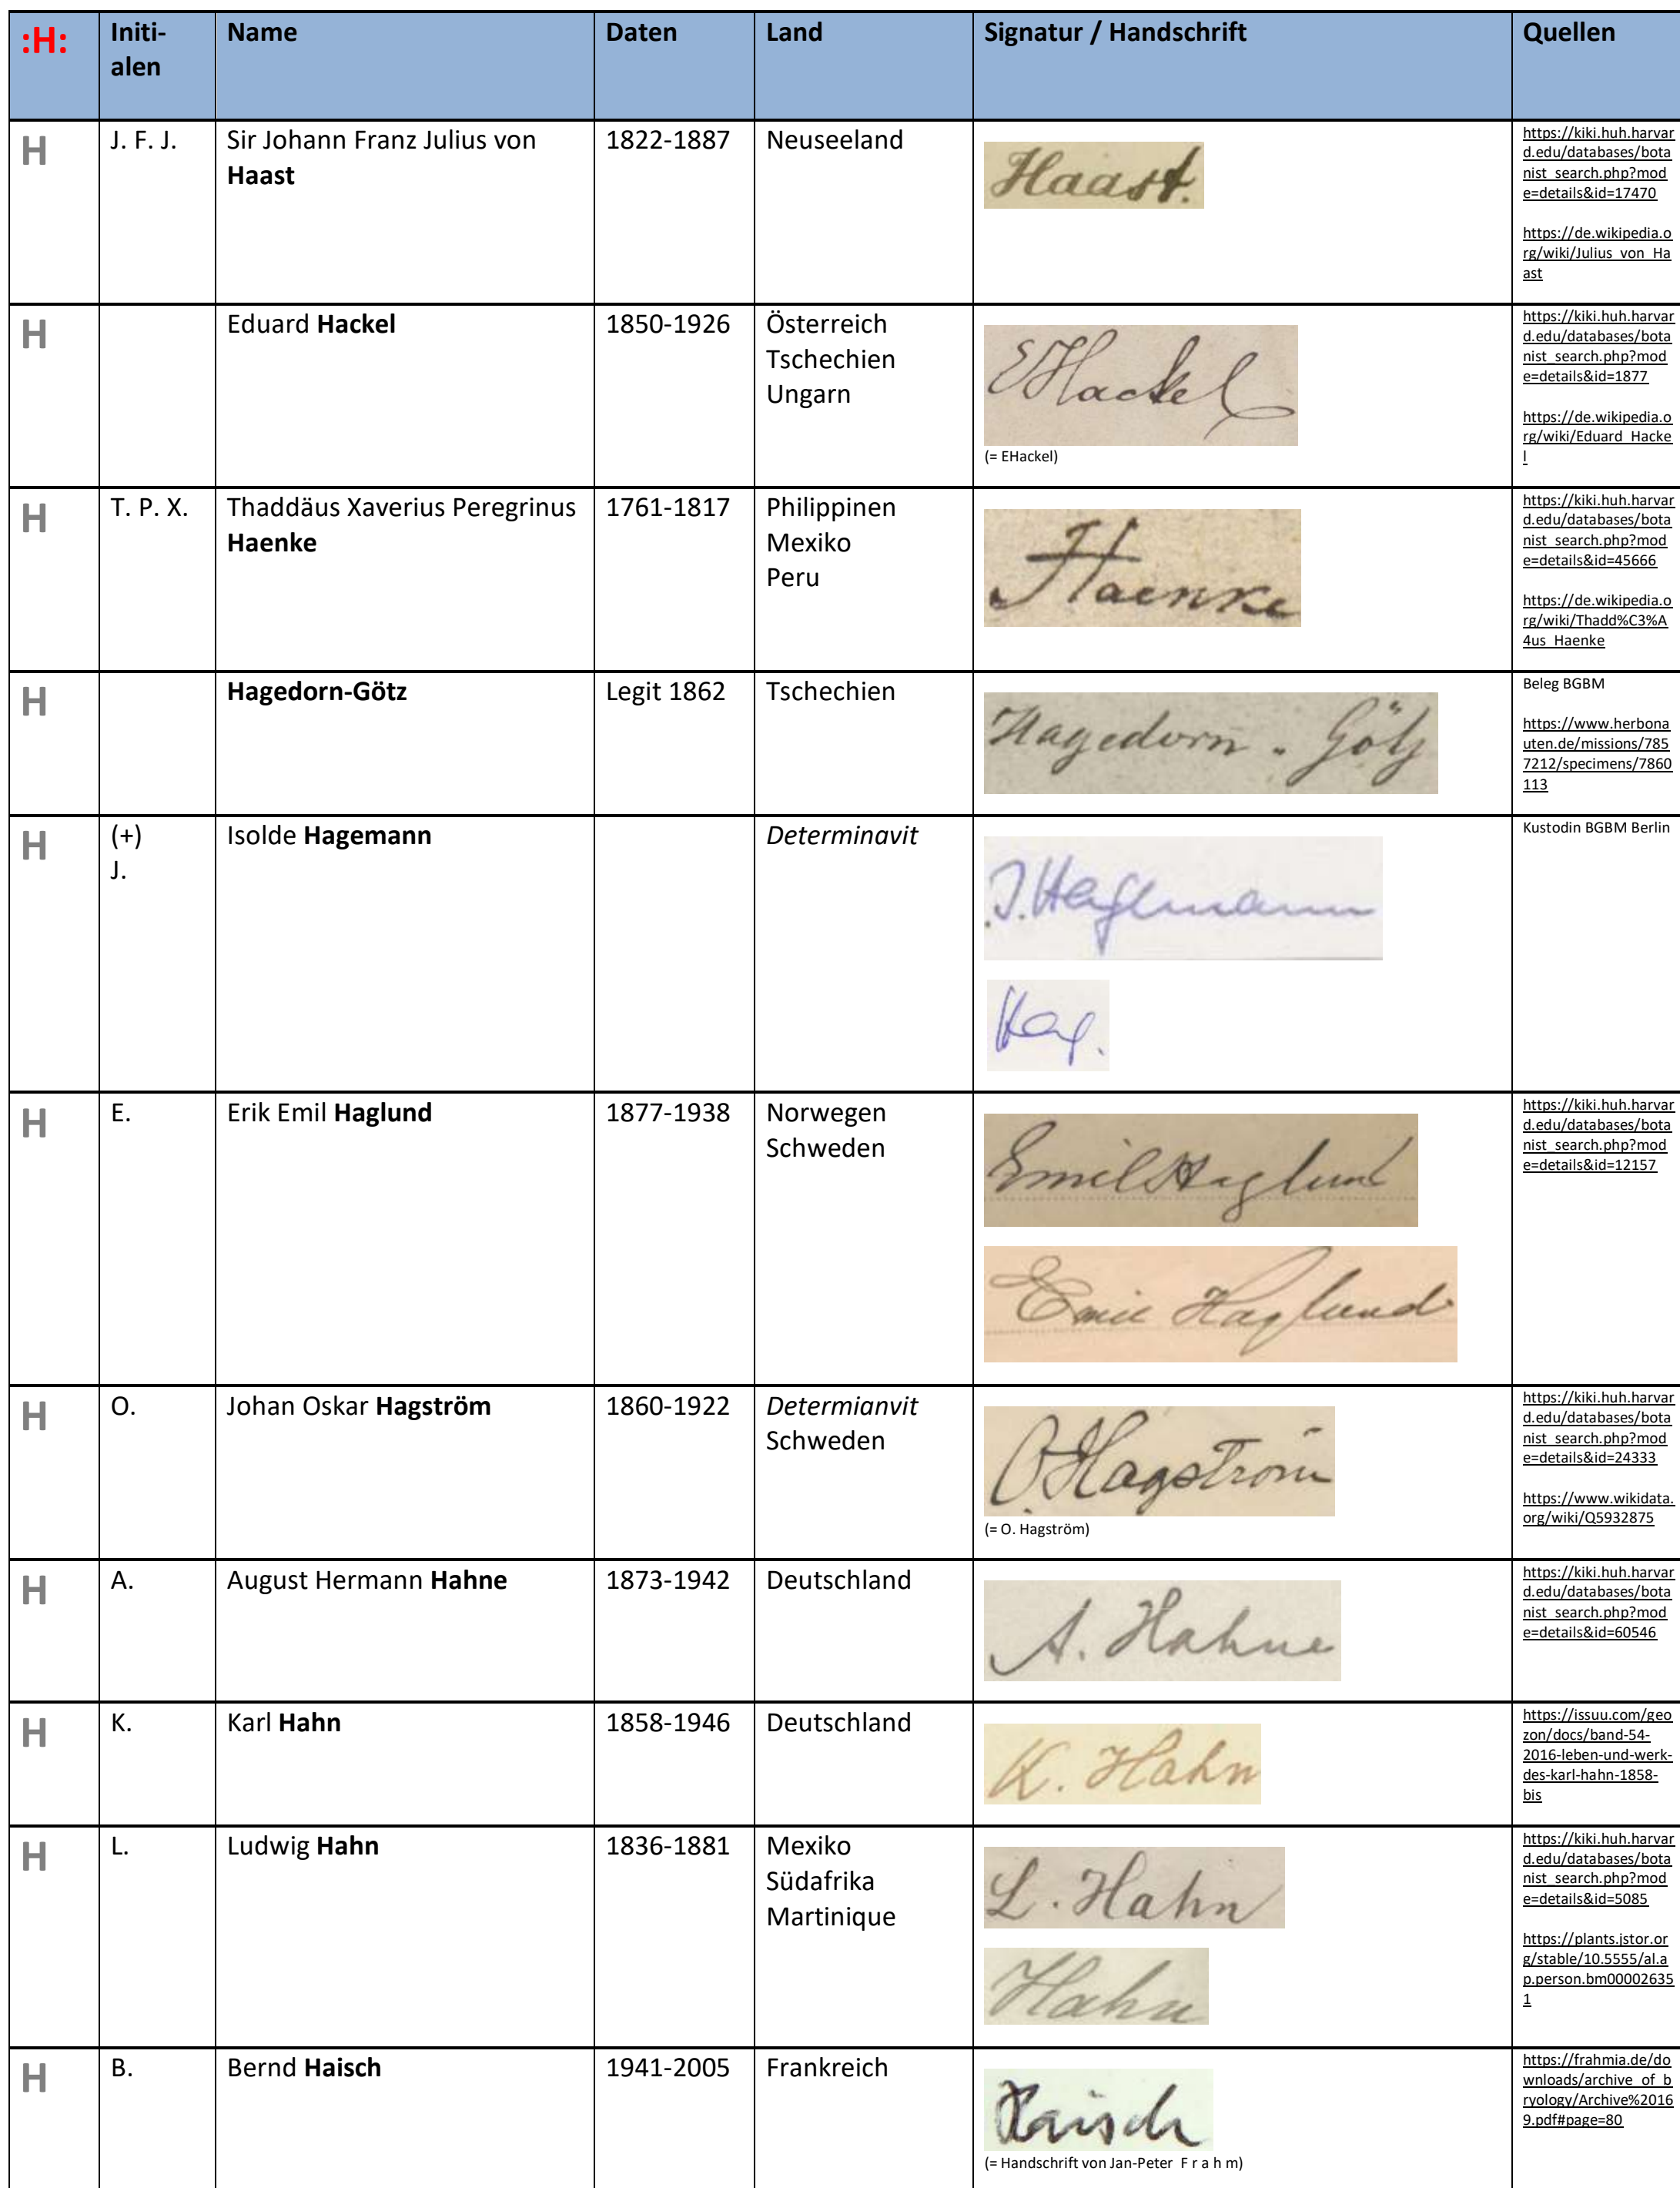 :H: Initi- Name Daten Land Signatur / Handschrift Quellen
alen
H J. F. J. Sir Johann Franz Julius von 1822-1887 Neuseeland Haast. https://kiki.huh.harvar
Haast d.edu/databases/bota
nist_search.php?mod
e=details&id=17470
https://de.wikipedia.o
rg/wiki/Julius_von_Ha
ast
H Eduard Hackel 1850-1926 Österreich EHackel https://kiki.huh.harvar
Tschechien d.edu/databases/bota
Ungarn nist_search.php?mod
e=details&id=1877
https://de.wikipedia.o
rg/wiki/Eduard_Hacke
(= EHackel) l
H T. P. X. Thaddäus Xaverius Peregrinus 1761-1817 Philippinen Haenke https://kiki.huh.harvar
Haenke Mexiko d.edu/databases/bota
Peru nist_search.php?mod
e=details&id=45666
https://de.wikipedia.o
rg/wiki/Thadd%C3%A
4us_Haenke
H Hagedorn-Götz Legit 1862 Tschechien Hagedorn-Götz Beleg BGBM
https://www.herbona
uten.de/missions/785
7212/specimens/7860
113
H (+) Isolde Hagemann Determinavit J. Hagemann Kustodin BGBM Berlin
J.
Hag.
H E. Erik Emil Haglund 1877-1938 Norwegen Emil Haglund https://kiki.huh.harvar
Schweden d.edu/databases/bota
nist_search.php?mod
e=details&id=12157
Emil Haglund
H O. Johan Oskar Hagström 1860-1922 Determianvit O. Hagström https://kiki.huh.harvar
Schweden d.edu/databases/bota
nist_search.php?mod
e=details&id=24333
https://www.wikidata.
org/wiki/Q5932875
(= O. Hagström)
H A. August Hermann Hahne 1873-1942 Deutschland A. Hahne https://kiki.huh.harvar
d.edu/databases/bota
nist_search.php?mod
e=details&id=60546
H K. Karl Hahn 1858-1946 Deutschland K. Hahn https://issuu.com/geo
zon/docs/band-54-
2016-leben-und-werk-
des-karl-hahn-1858-
bis
H L. Ludwig Hahn 1836-1881 Mexiko L. Hahn https://kiki.huh.harvar
Südafrika d.edu/databases/bota
Martinique nist_search.php?mod
e=details&id=5085
Hahn https://plants.jstor.or
g/stable/10.5555/al.a
p.person.bm00002635
1
H B. Bernd Haisch 1941-2005 Frankreich Haisch https://frahmia.de/do
wnloads/archive_of_b
ryology/Archive%2016
9.pdf#page=80
(= Handschrift von Jan-Peter F r a h m)